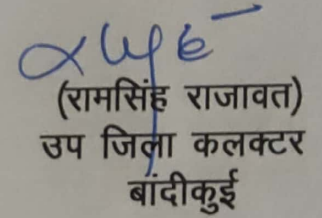 (रामसिंह राजावत)
उप जिला कलक्टर
बांदीकुई